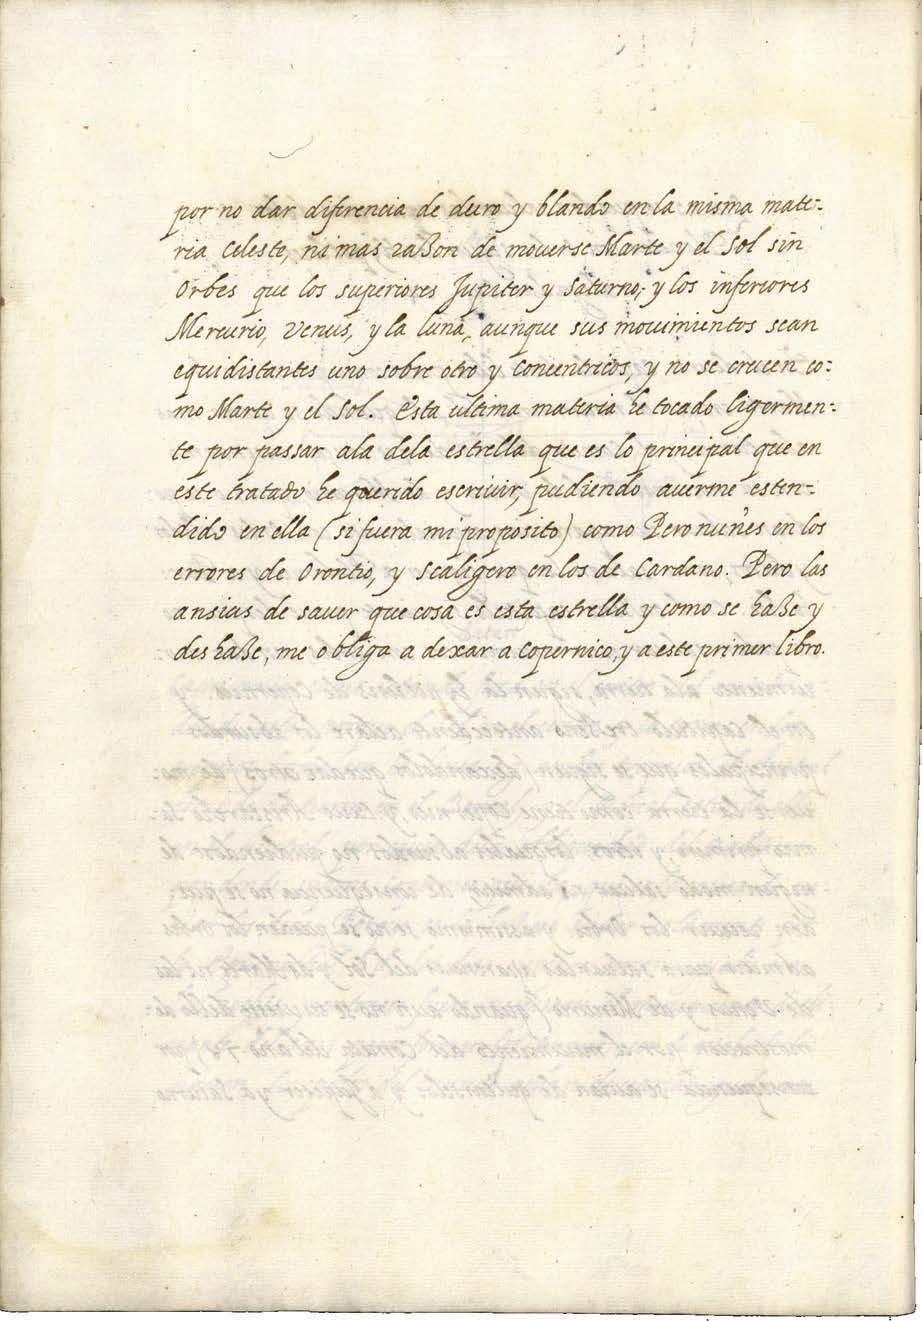 por no dar diferencia de duro y blando en la misma mate-
ria Celeste, ni mas raßon de moverse Marte y el Sol sin
Orbes que los superiores Jupiter y Saturno, y los inferiores
Mercurio, Venus, y la luna, aunque sus mouimientos sean
equidistantes uno sobre otro y Concentricos, y no se crucen co-
mo Marte y el Sol. Esta ultima materia he tocado ligermen-
te por passar ala dela estrella que es lo principal que en
este tratado he querido escrivir, pudiendo averme esten-
dido en ella (si fuera mi proposito) como Pero nuñes en los
errores de Orontio, y Scaligero en los de Cardano. Pero las
ansias de saver que cosa es esta estrella y como se haße y
deshaße, me obliga a dexar a Copernico, y a este primer libro.